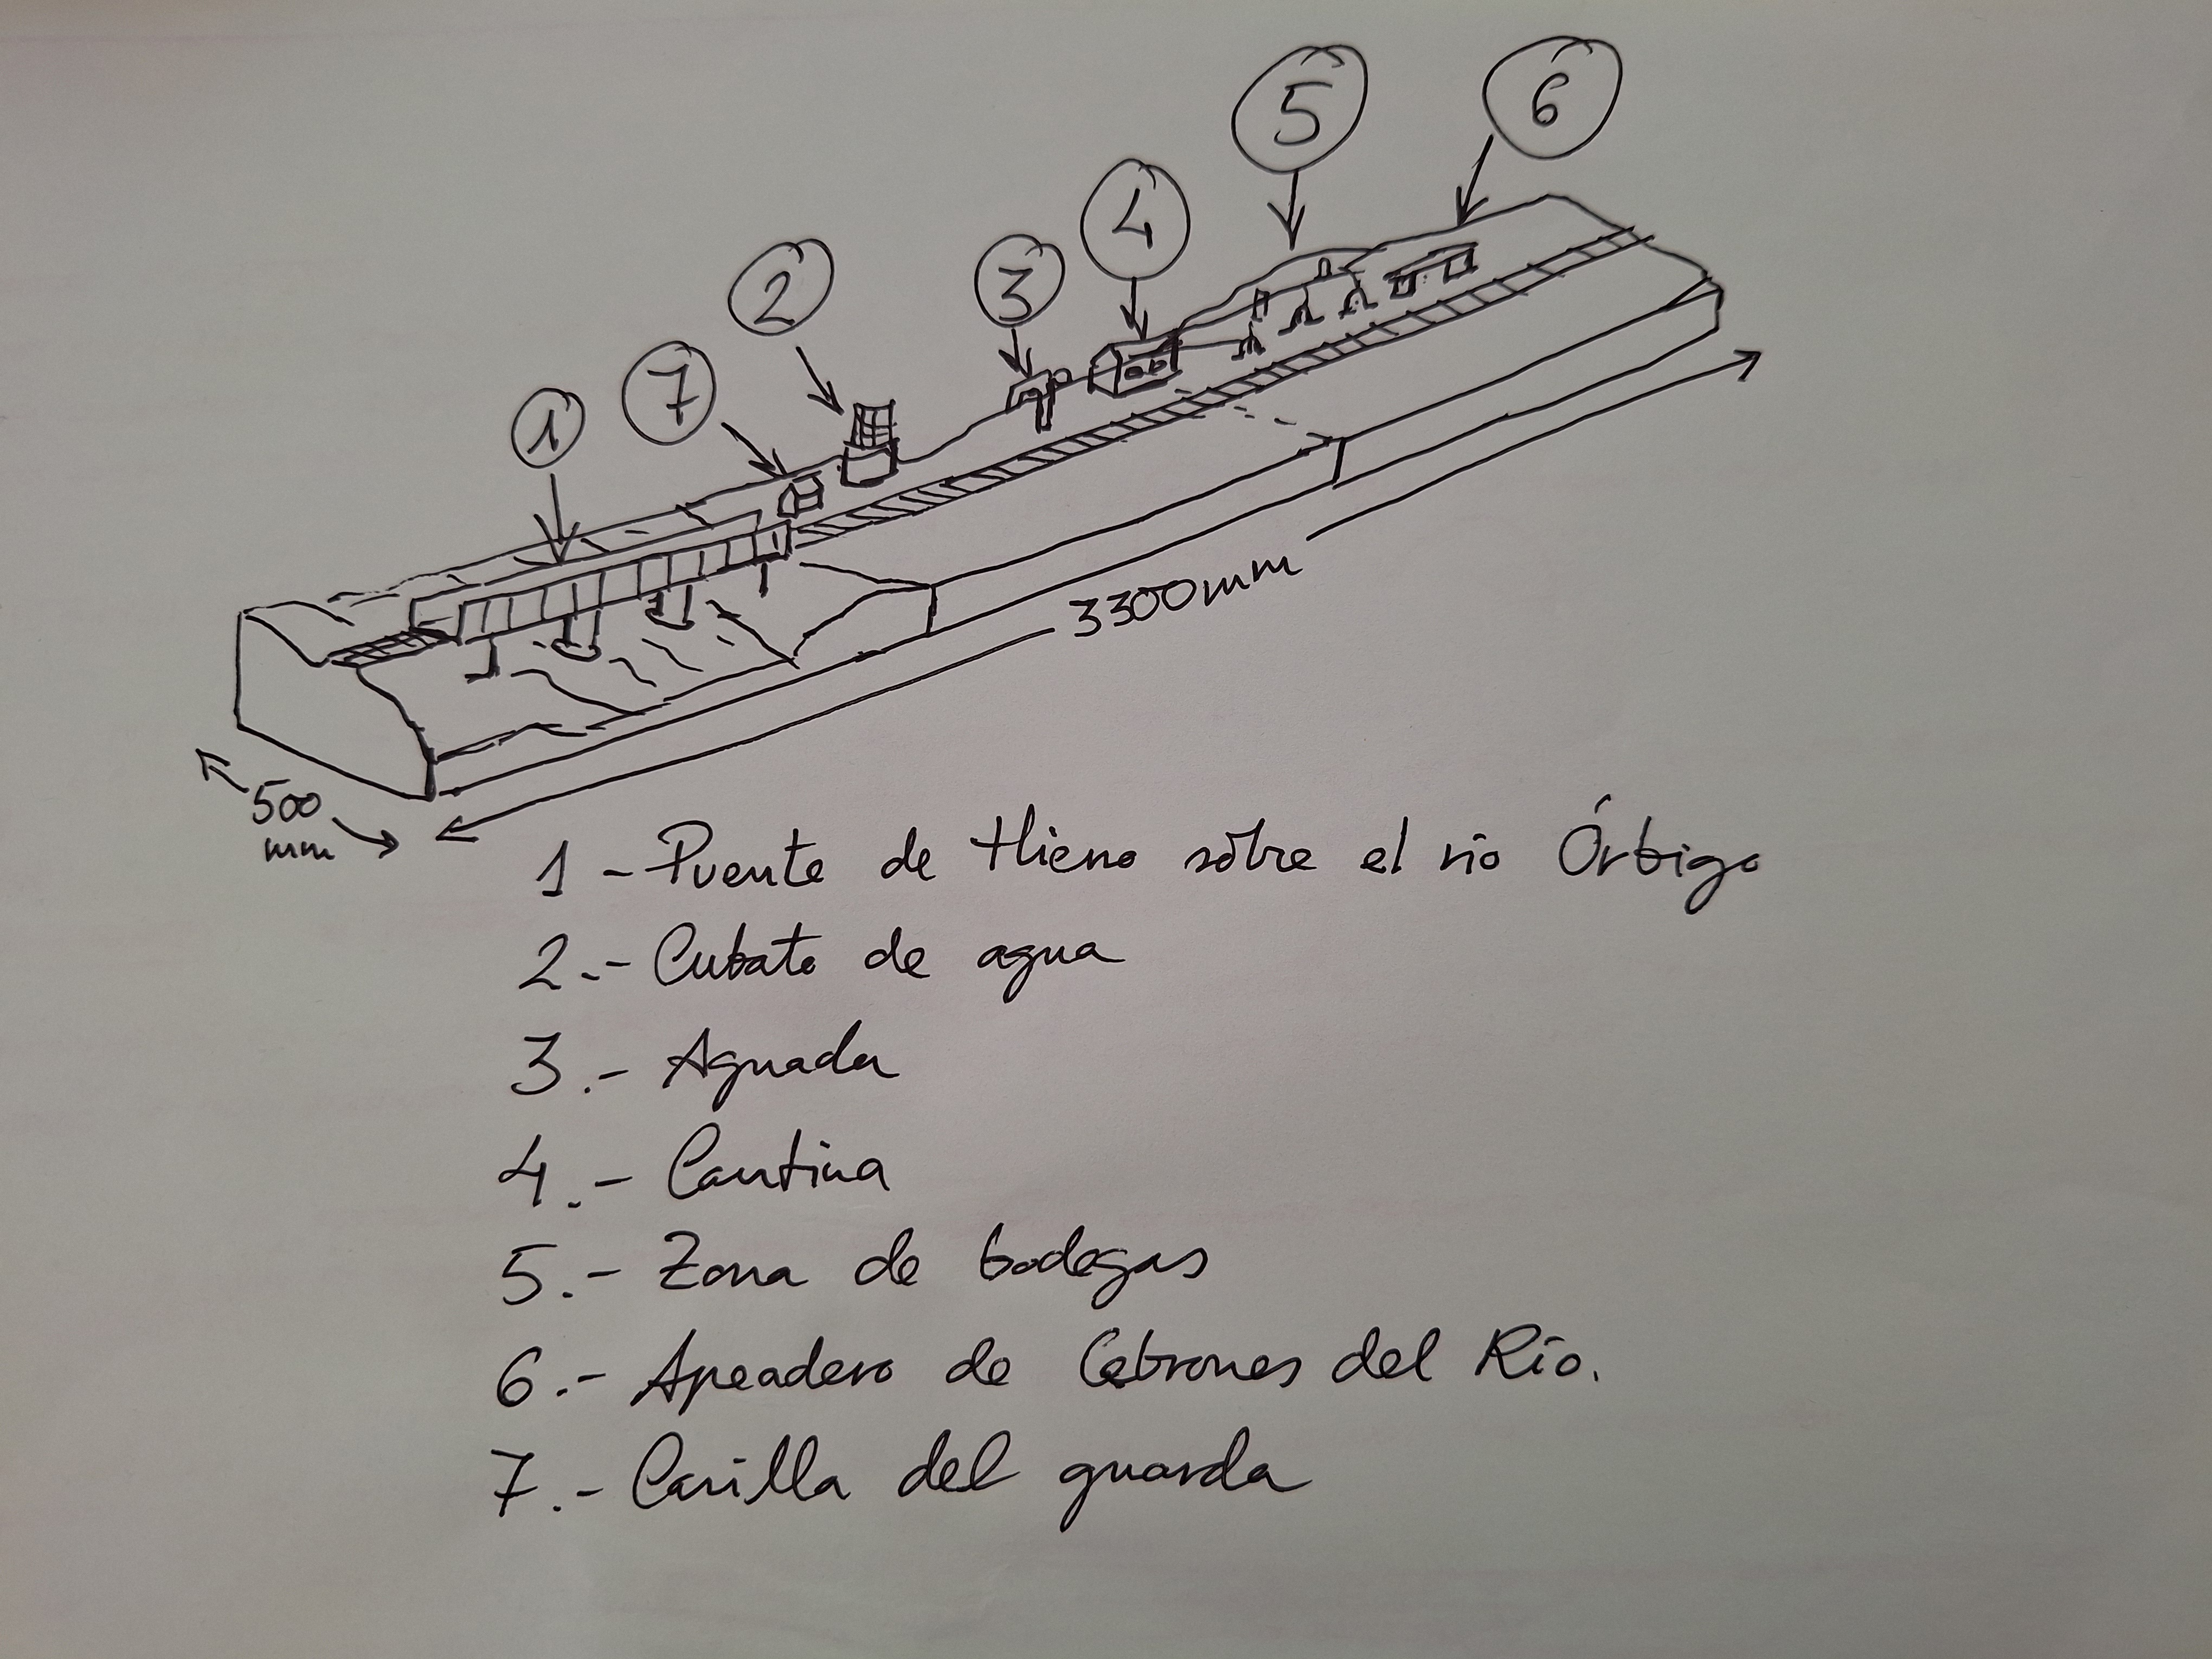 5
6
4
3
2
7
1
3300mm
500
mm
1 - Puente de Hierro sobre el río Órbigo
2.- Cubato de agua
3.- Aguada
4.- Cantina
5.- Zona de bodegas
6.- Apeadero de Cebrones del Río.
7.- Casilla del guarda